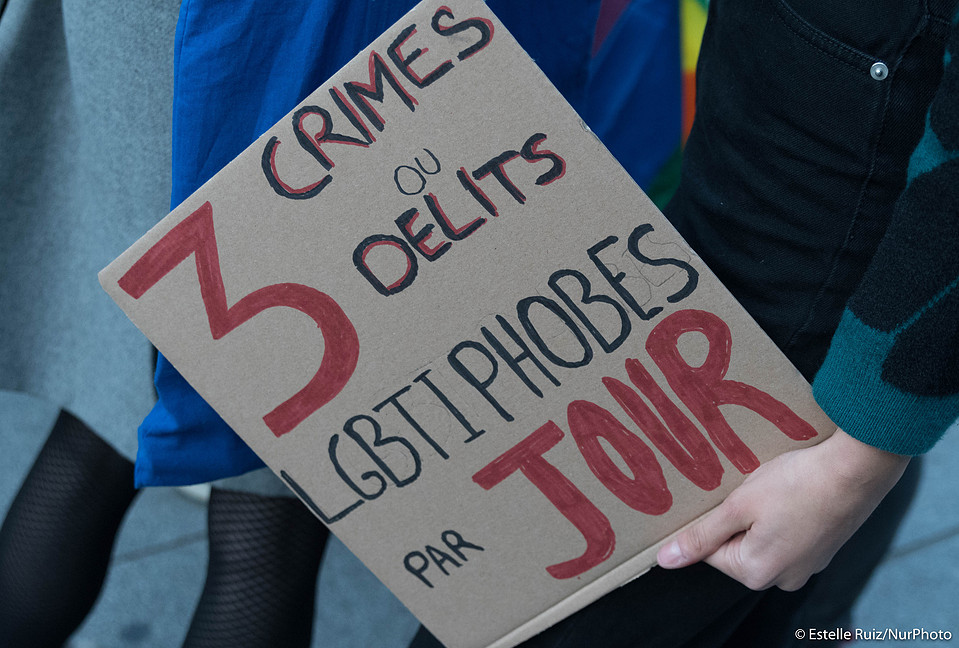 3 CRIMES
OU
DELITS
LGBTIPHOBES
PAR JOUR
© Estelle Ruiz/NurPhoto